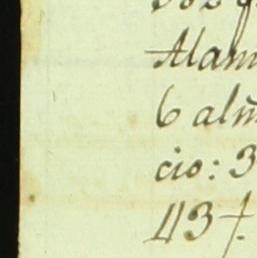 Alam
6 alm
cio: 3
43 f.